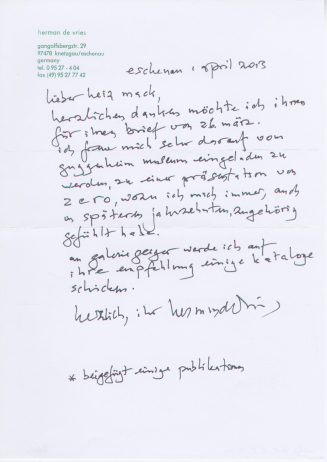 herman de vries
gangolfsbergstr. 29
97478 knetzgau/eschenau
germany
tel. 0 95 27 - 4 04
fax (49) 95 27 77 42
eschenau, april 2013
lieber heinz mack,
herzlichen danken möchte ich ihnen
für ihren brief von 26. märz.
ich freue mich sehr darauf vom
guggenheim museum eingeladen zu
werden, zu einer präsentation von
zero, wozu ich mich immer, auch
in späteren jahrzehnten, zugehörig
gefühlt habe.
an galerie geiger werde ich auf
ihre empfehlung einige kataloge
schicken.
herzlich, ihr herman de vries,
* beigefügt einige publikationen